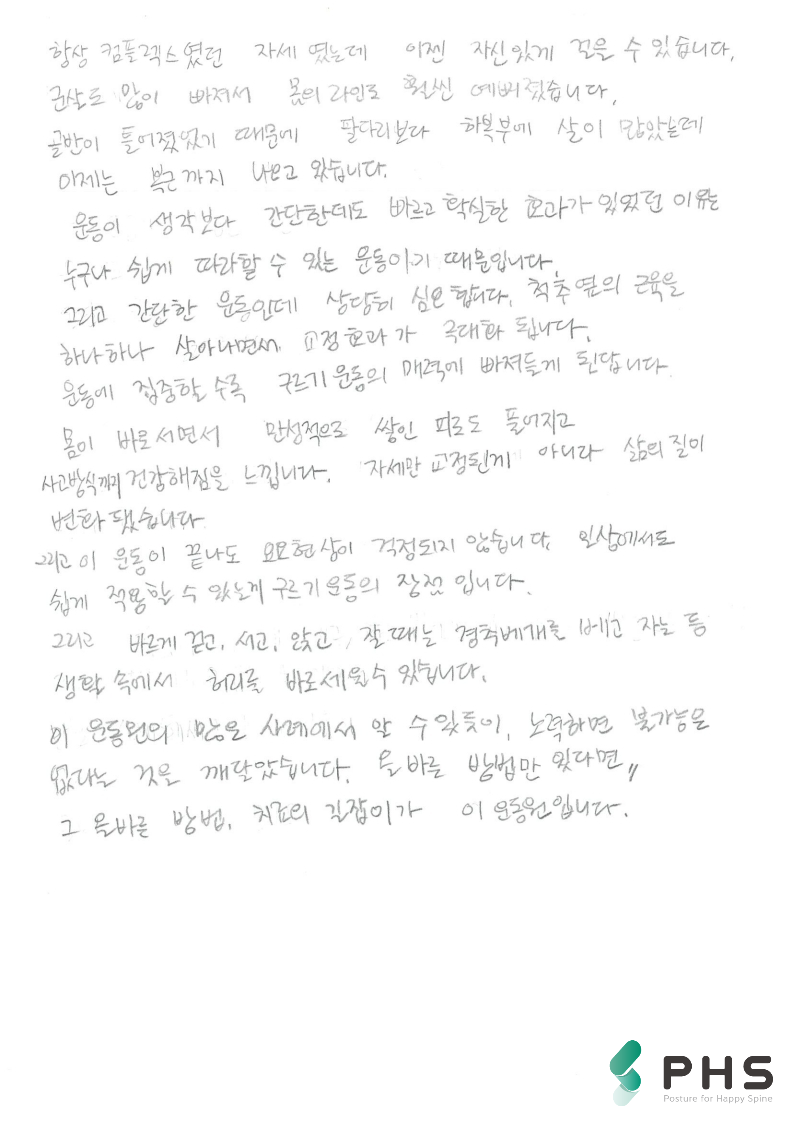 항상 컴플렉스였던 자세 였는데 이젠 자신있게 걸을 수 있습니다.
군살도 많이 빠져서 몸의 라인도 훨씬 예뻐졌습니다.
골반이 틀어졌었기 때문에 팔다리보다 하복부에 살이 많았는데
이제는 복근까지 나오고 있습니다.
운동이 생각보다 간단한데도 빠르고 확실한 효과가 있었던 이유는
누구나 쉽게 따라할 수 있는 운동이기 때문입니다.
그리고 간단한 운동인데 상당히 심오합니다. 척추옆의 근육을
하나하나 살아나면서, 교정효과가 극대화 됩니다.
운동에 집중할 수록 구르기운동의 매력에 빠져들게 된답니다.
몸이 바로서면서 만성적으로 쌓인 피로도 풀어지고
사고방식까지 건강해짐을 느낍니다. 자세만 교정된게 아니라 삶의 질이
변화됐습니다
그리고 이 운동이 끝나도 요요현상이 걱정되지 않습니다. 일상에서도
쉽게 적용할 수 있는게 구르기운동의 장점 입니다.
그리고 바르게 걷고, 서고, 앉고, 잘 때는 경추베개를 베고 자는 등
생활 속에서 허리를 바로세울수 있습니다.
이 운동원의 많은 사례에서 알 수 있듯이, 노력하면 불가능은
없다는 것을 깨달았습니다. 올바른 방법만 있다면 〃
그 올바른 방법, 치료의 길잡이가 이 운동원입니다.
PHS
Posture for Happy Spine